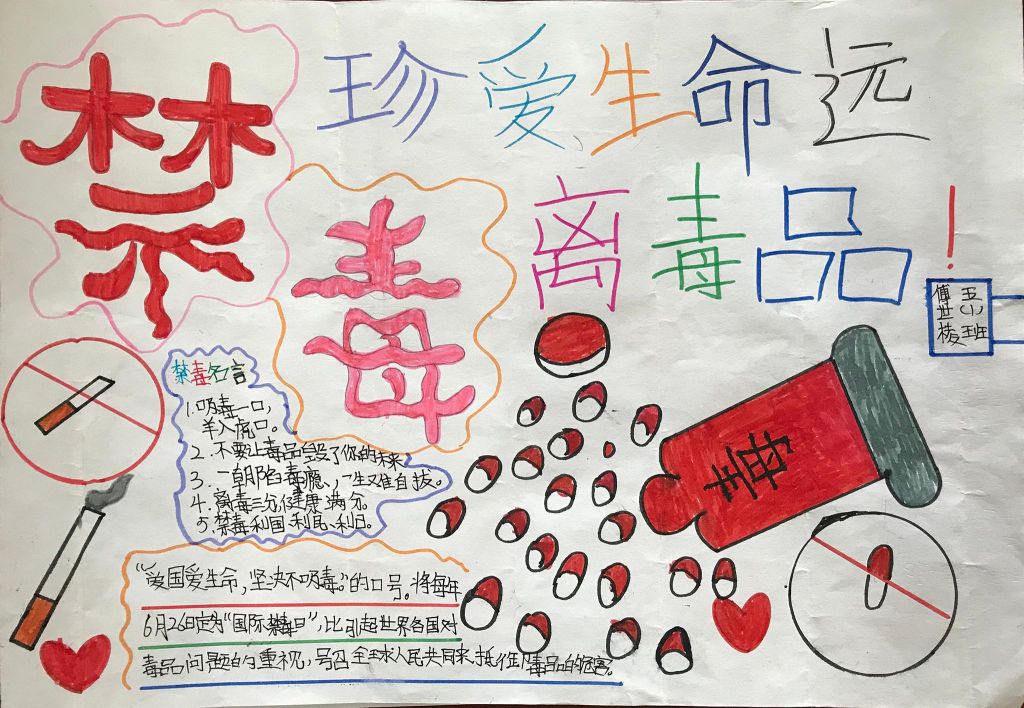 禁
毒
珍爱生命远
离毒品!
五(1)班
傅世棱
毒
禁毒名言
1.吸毒一口,
羊入虎口。
2.不要让毒品毁了你的未来
3.一朝陷毒瘾,一生难自拔。
4.离毒三分,健康满分。
5.禁毒利国、利民、利己。
“爱国爱生命,坚决不吸毒。”的口号。将每年
6月26日定为“国际禁毒日”,以引起世界各国对
毒品问题的重视,号召全球人民共同来抵御毒品的危害。